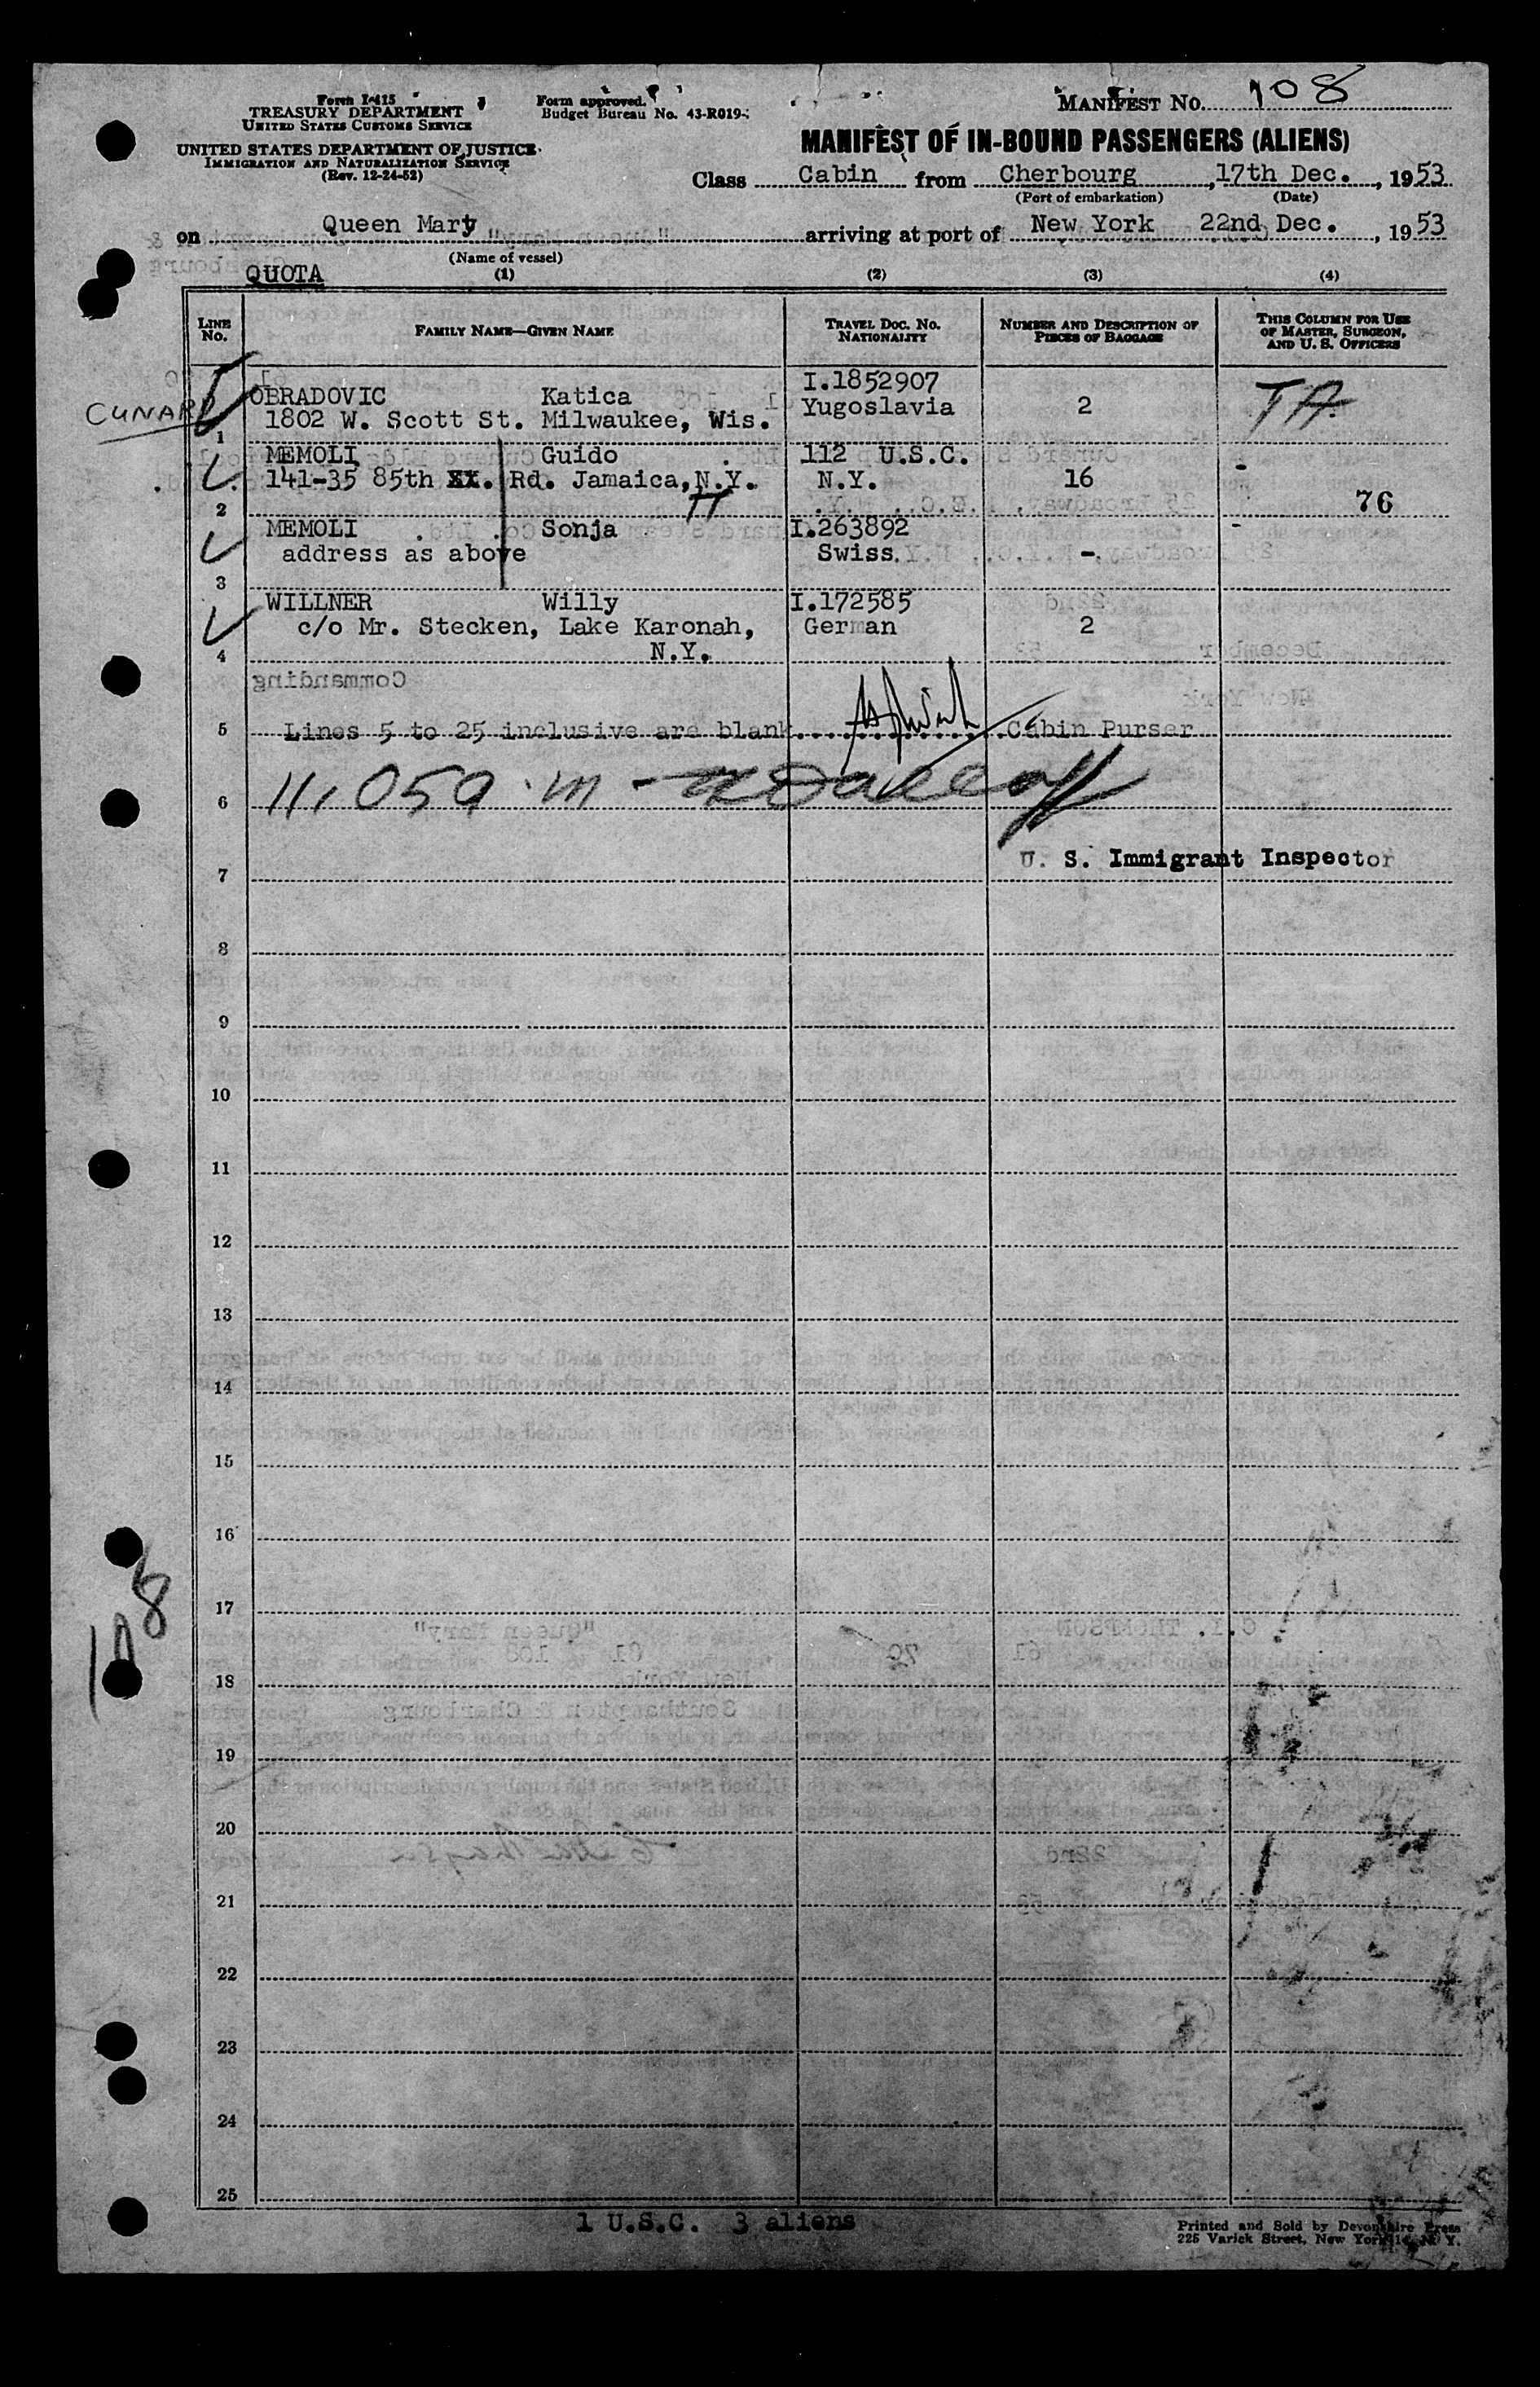 Form I-415
TREASURY DEPARTMENT
UNITED STATES CUSTOMS SERVICE
UNITED STATES DEPARTMENT OF JUSTICE
IMMIGRATION AND NATURALIZATION SERVICE
(Rev. 12-24-52)
Form approved.
Budget Bureau No. 43-R019-
MANIFEST NO. 108
MANIFEST OF IN-BOUND PASSENGERS (ALIENS)
Class Cabin from Cherbourg, 17th Dec., 1953
(Port of embarkation) (Date)
on Queen Mary arriving at port of New York 22nd Dec., 1953
(Name of vessel)
QUOTA (1) (2) (3) (4)
LINE NO. FAMILY NAME—GIVEN NAME TRAVEL DOC. NO. NATIONALITY NUMBER AND DESCRIPTION OF PIECES OF BAGGAGE THIS COLUMN FOR USE OF MASTER, SURGEON, AND U. S. OFFICERS
CUNARD
1 OBRADOVIC Katica I.1852907 TA
1802 W. Scott St. Milwaukee, Wis. Yugoslavia 2
2 MEMOLI Guido 112 U.S.C. -
141-35 85th Rd. Jamaica, N.Y. N.Y. 16 76
3 MEMOLI Sonja I.263892 -
address as above Swiss. -
4 WILLNER Willy I.172585
c/o Mr. Stecken, Lake Karonah, German 2
N.Y.
5 Lines 5 to 25 inclusive are blank Cabin Purser
6 11,059
U. S. Immigrant Inspector
7
8
9
10
11
12
13
14
15
16
17
108
18
19
20
21
22
23
24
25
1 U.S.C. 3 aliens
Printed and Sold by Devonshire Press
225 Varick Street, New York 14, N. Y.